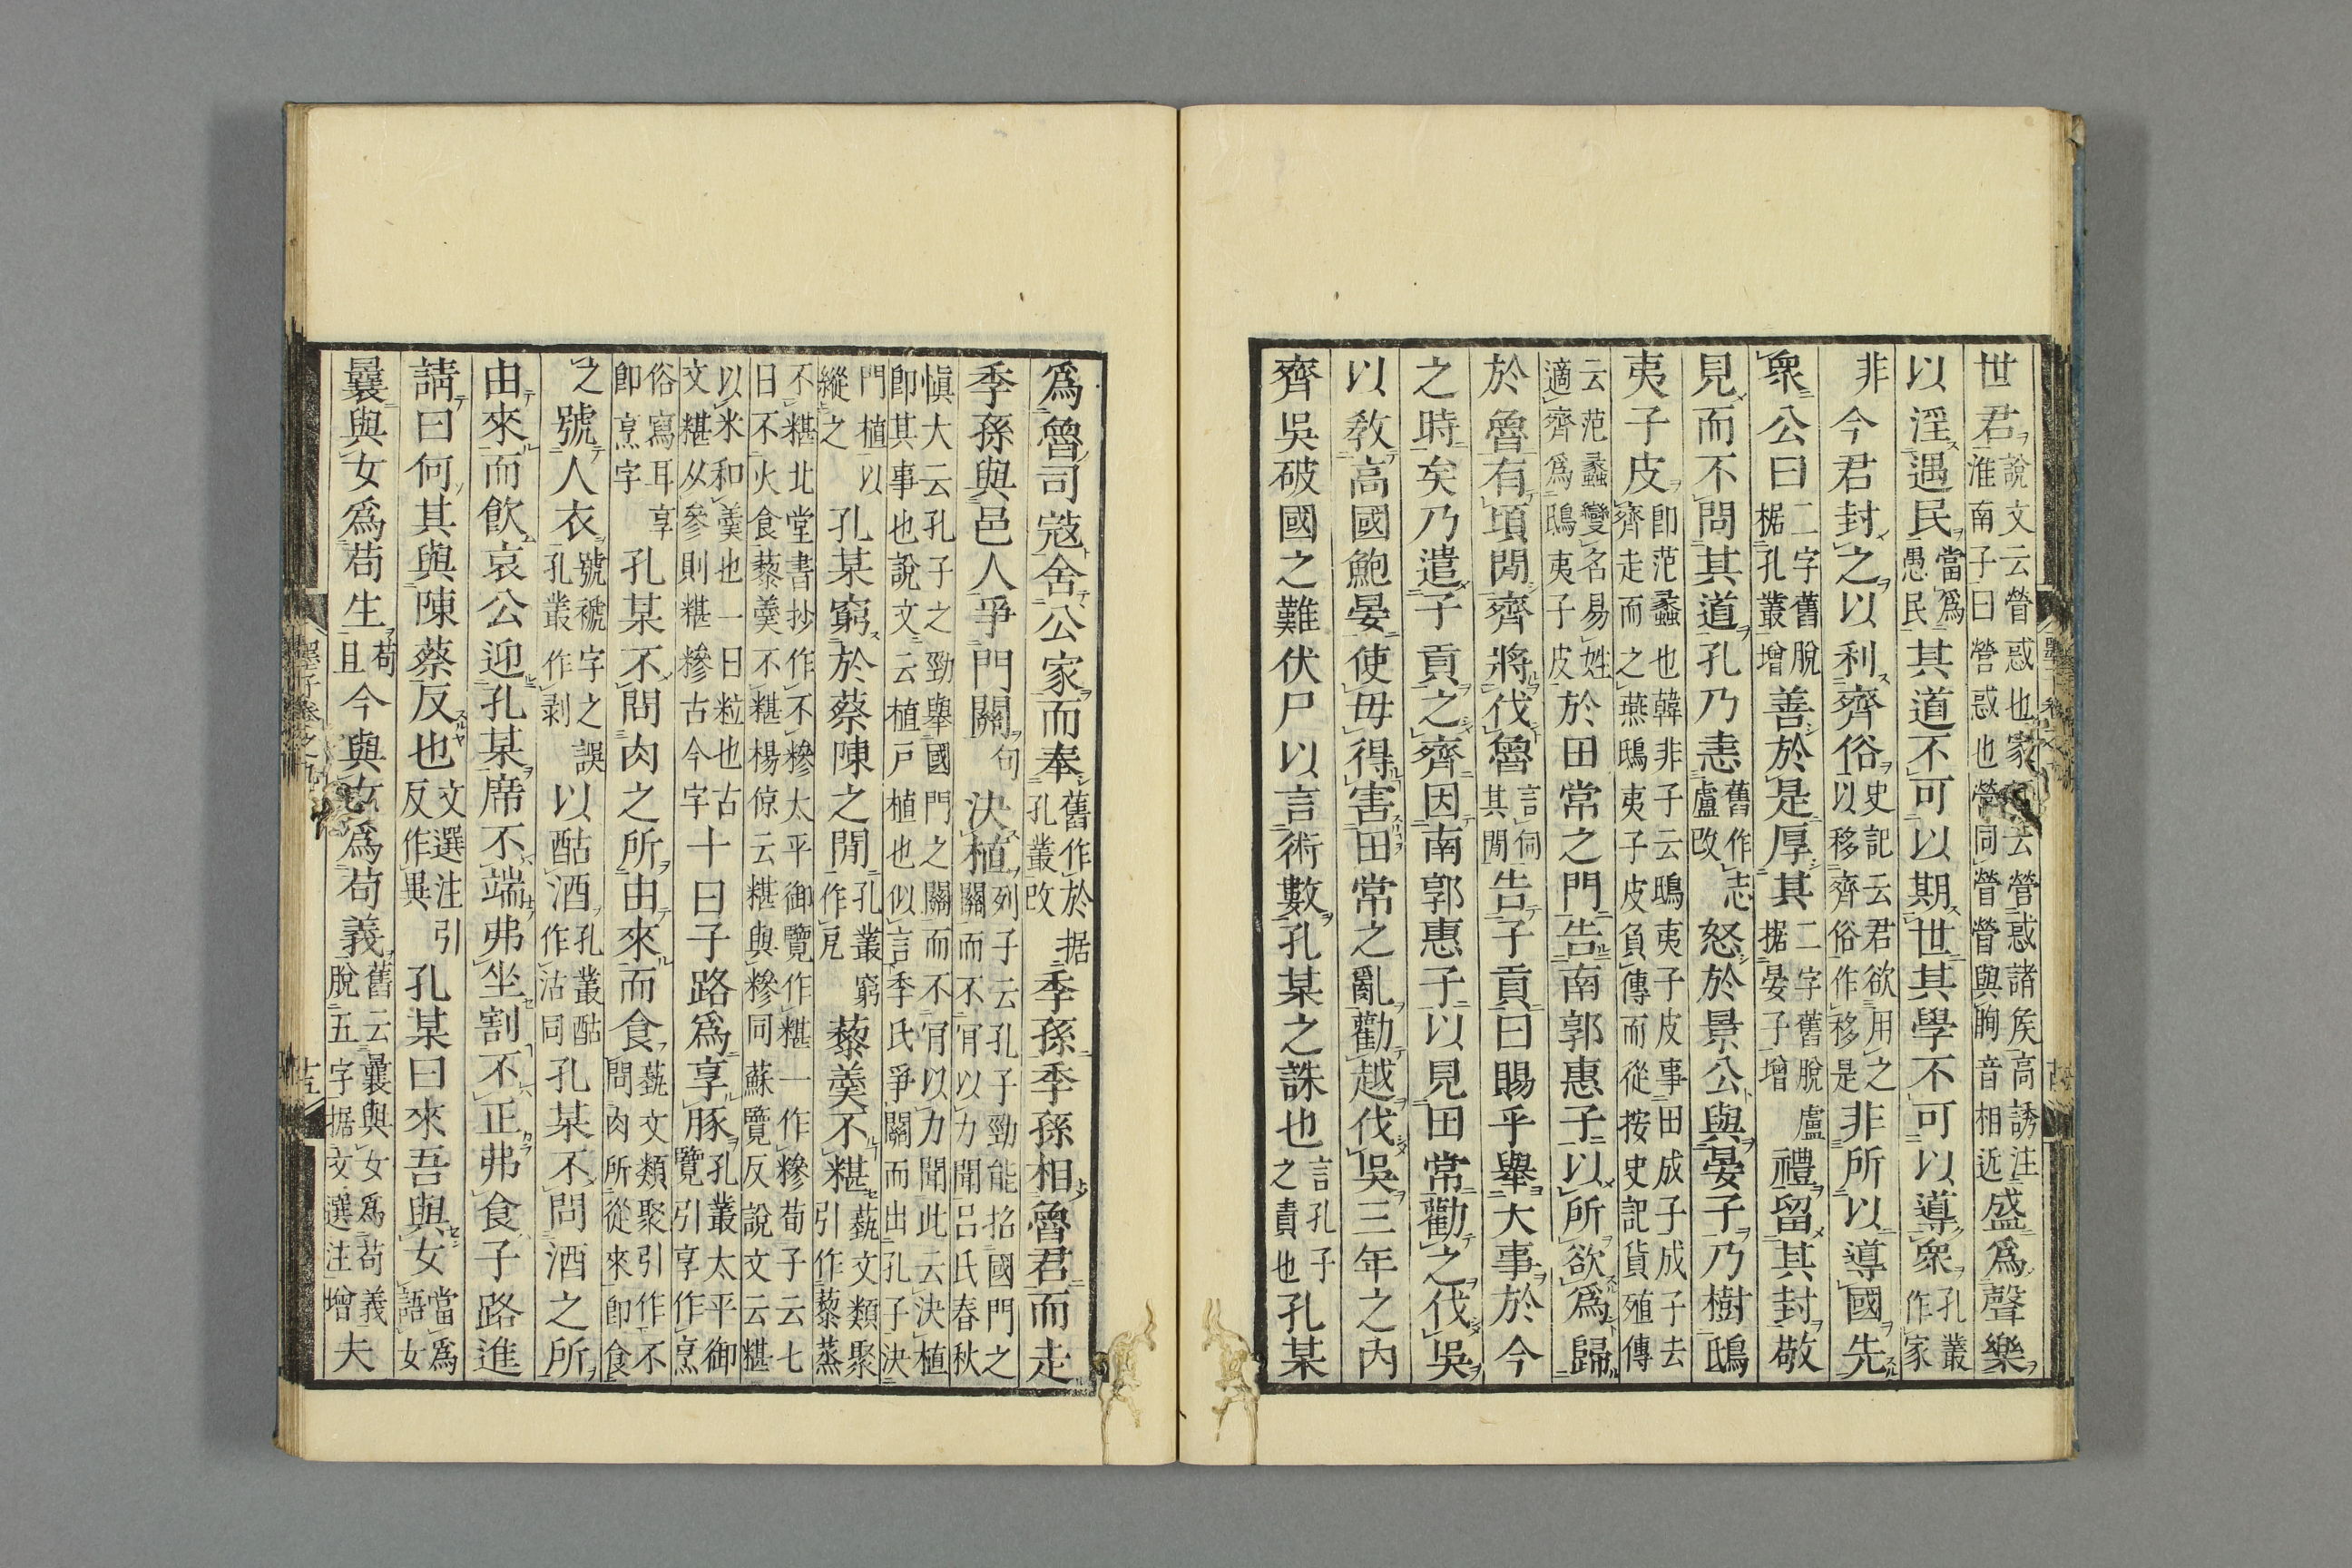 世君說文云營惑也家云營惑諸矦高誘注淮南子曰營惑也營同營營與胸音相近盛爲聲樂
以淫遇民當爲愚民其道不可以期世其學不可以導衆孔叢作家
非今君封之以利齊俗史記云君欲用之以移齊俗作移是非所以導國先
衆公曰二字舊脫据孔叢增善於是厚其二字舊脫盧据晏子增禮留其封敬
見而不問其道孔乃恚舊作志盧改怒於景公與晏子乃樹鴟
夷子皮即范蠡也韓非子云鴟夷子皮事田成子成子去齊走而之燕鴟夷子皮負傳而從按史記貨殖傳
云范蠡變名易姓適齊爲鴟夷子皮於田常之門告南郭惠子以所欲爲歸
於魯有頃閒齊將伐魯言伺其閒告子貢曰賜乎舉大事於今
之時矣乃遣子貢之齊因南郭惠子以見田常勸之伐吳
以敎高國鮑晏使毋得害田常之亂勸越伐吳三年之內
齊吳破國之難伏尸以言術數孔某之誅也言孔子之責也孔某
爲魯司寇舍公家而奉舊作於据孔叢改季孫季孫相魯君而走
季孫與邑人爭門關句決植列子云孔子勁能招國門之關而不肎以力聞呂氏春秋
愼大云孔子之勁舉國門之關而不肎以力聞此云決植即其事也說文云植戸植也似言季氏爭關而出孔子決
門植以縱之孔某窮於蔡陳之閒孔叢窮作戹藜羹不糂藝文類聚引作藜蒸
不糂北堂書抄作不糝太平御覽作糂一作糝荀子云七日不火食藜羹不糂楊倞云糂與糝同蘇覽反說文云糂
以米和羹也一曰粒也古文糂从參則糂糝古今字十日子路爲享豚孔叢太平御覽引享作烹
俗寫耳享即烹字孔某不問肉之所由來而食藝文類聚引作不問肉所從來即食
之號人衣號褫字之誤孔叢作剥以酤酒孔叢酤作沽同孔某不問酒之所
由來而飮哀公迎孔某席不端弗坐割不正弗食子路進
請曰何其與陳蔡反也文選注引反作異孔某曰來吾與女當爲語女
曩與女爲苟生苟且今與女爲苟義舊云曩與女爲苟義脫五字据文選注增夫
墨子卷之九
十五